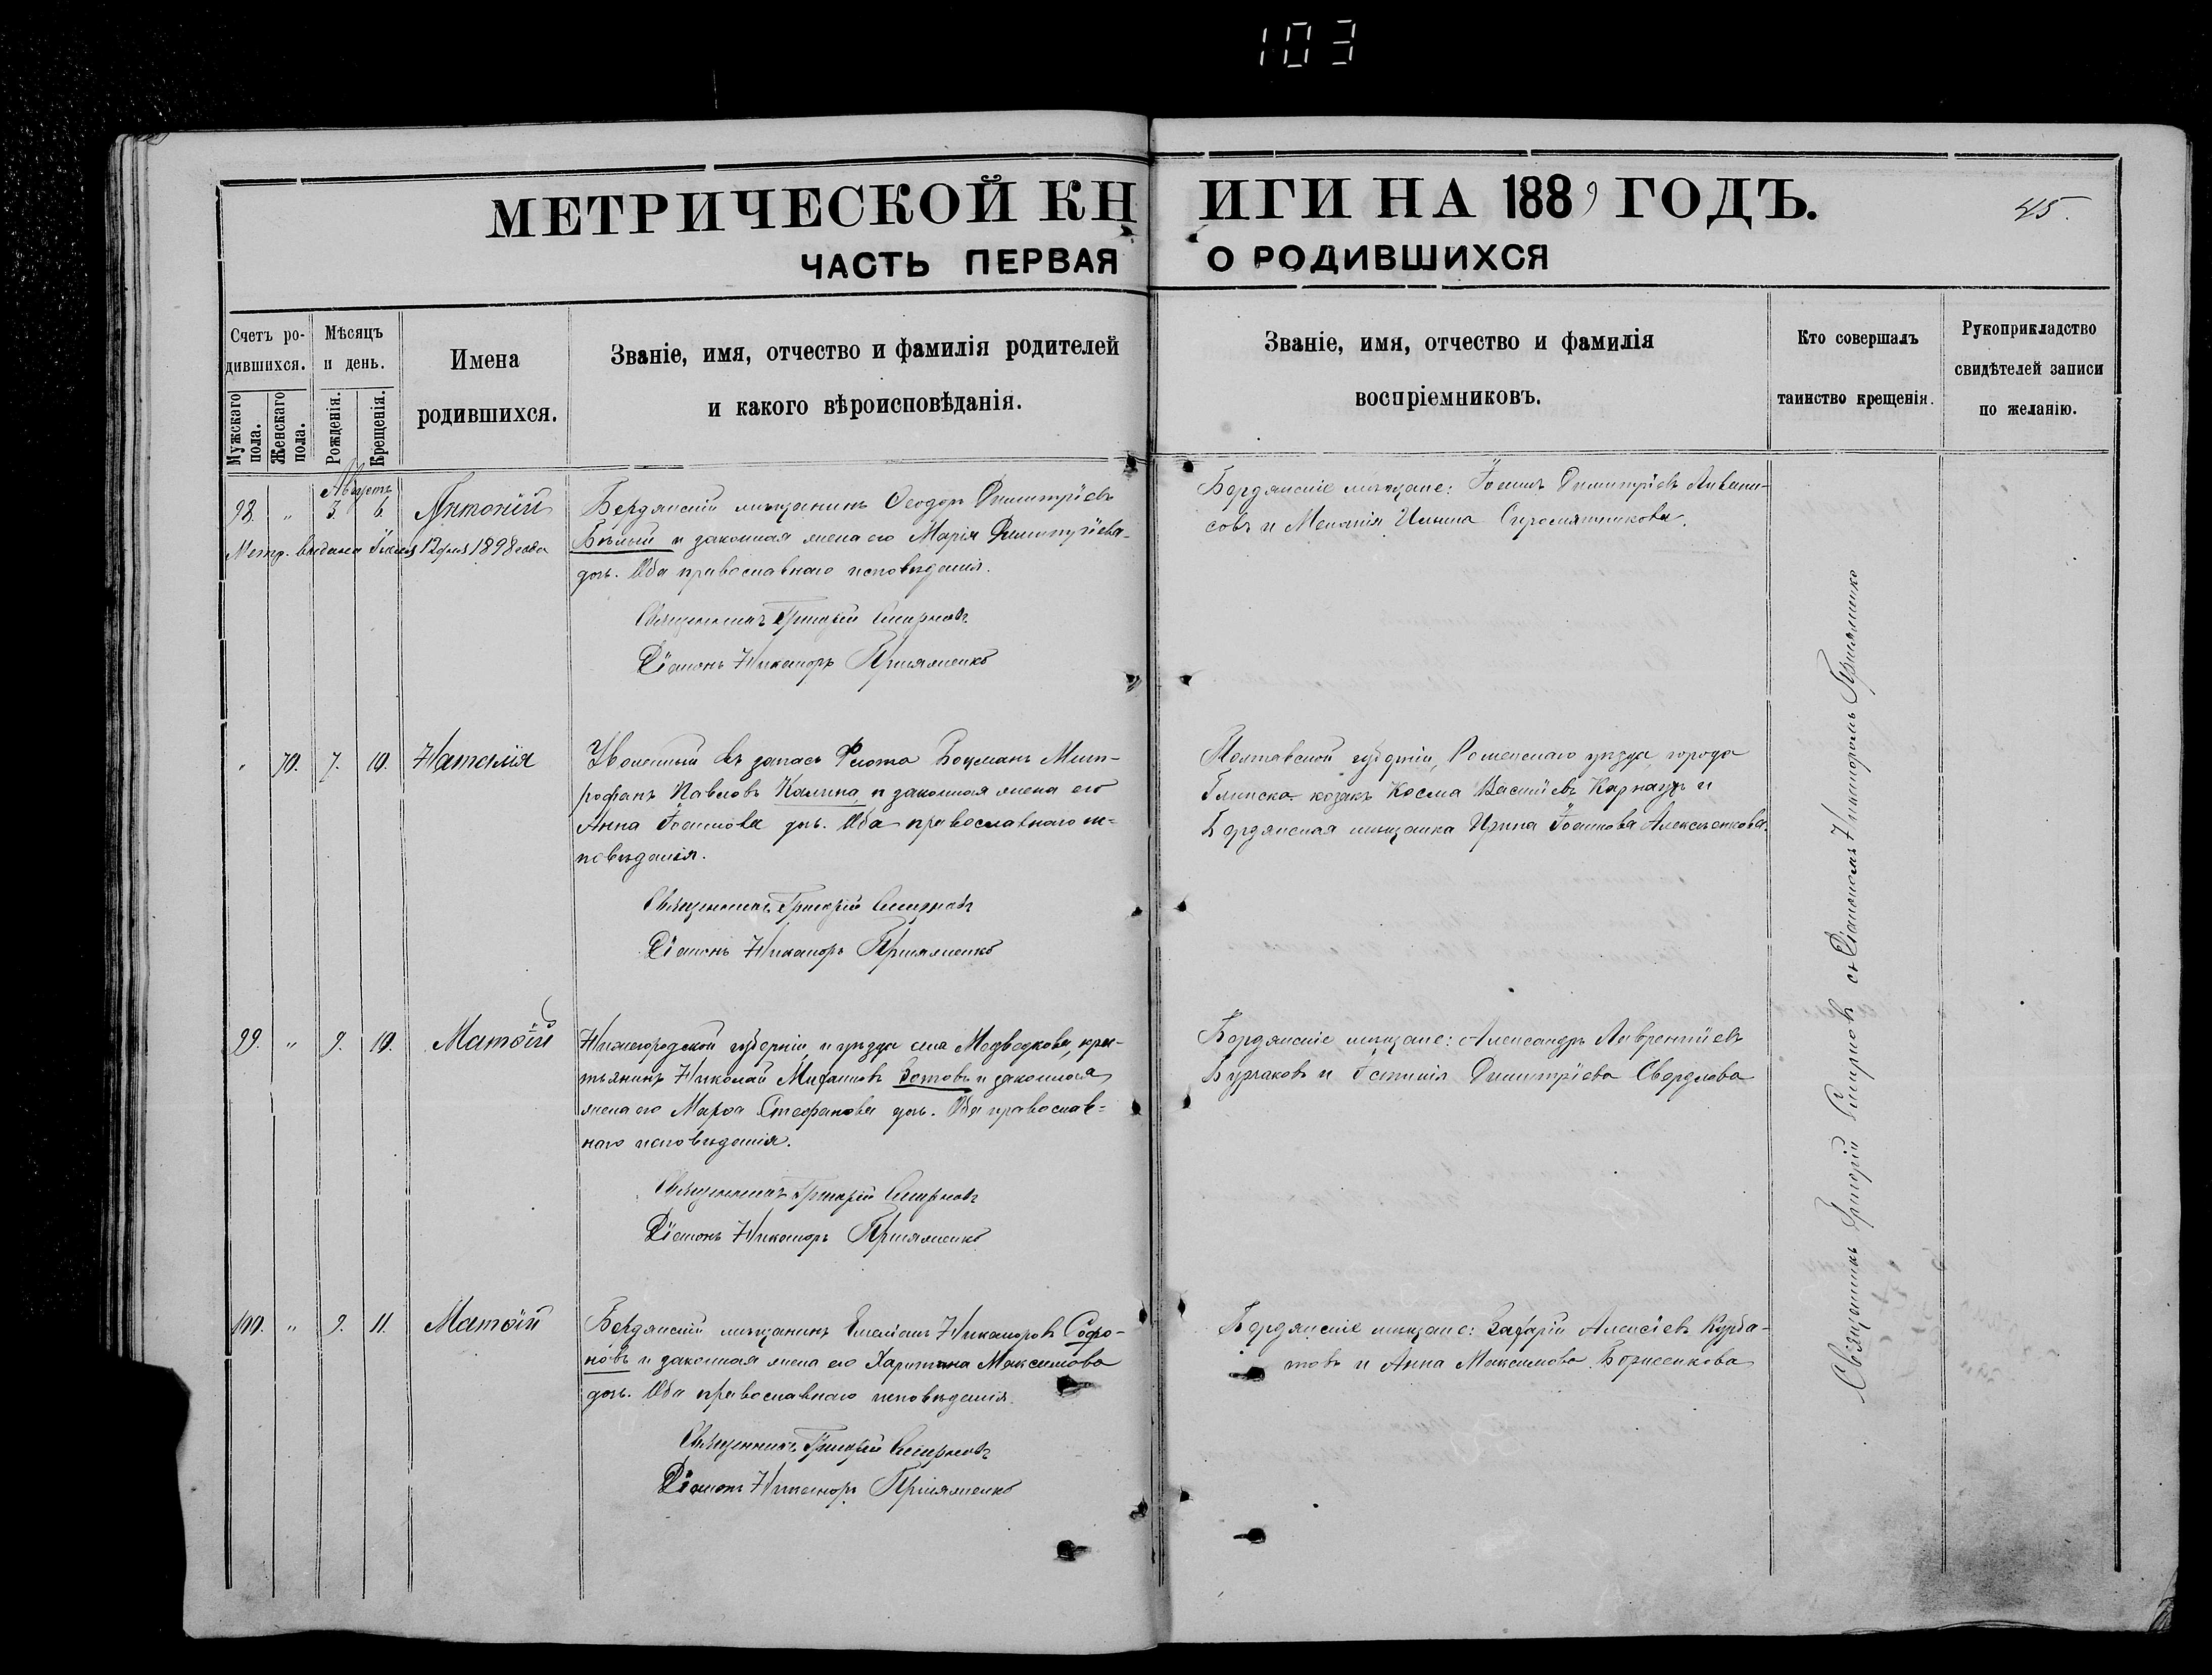 103
МЕТРИЧЕСКОЙ КНИГИ НА 1889 ГОДЪ.
45.
ЧАСТЬ ПЕРВАЯ О РОДИВШИХСЯ
Счетъ ро-
дившихся.
Мужскаго
пола.
Женскаго
пола.
Мѣсяцъ
и день.
Рожденія.
Крещенія.
Имена
родившихся.
Званіе, имя, отчество и фамилія родителей
и какого вѣроисповѣданія.
Званіе, имя, отчество и фамилія
воспріемниковъ.
Кто совершалъ
таинство крещенія.
Рукоприкладство
свидѣтелей записи
по желанію.
Августъ
98. " 3. 6. Антоній
Метр. выдана Іюня 12 дня 1898 года
Бердянскій мѣщанинъ Ѳеодоръ Димитріевъ
Бѣлый и законная жена его Марія Димитріева
дочь. Оба православнаго исповѣданія.
Священникъ Григорій Смирновъ
Діаконъ Никаноръ
Бердянскіе мѣщане: Іоаннъ Димитріевъ
совъ и Меланія Ильина Сыромятникова.
" 70. 7. 10. Наталія
Уволенный въ запасъ Флота Боцманъ Мит-
рофанъ Павловъ Калина и законная жена его
Анна Іоаннова дочь. Оба православнаго ис-
повѣданія.
Священникъ Григорій Смирновъ
Діаконъ Никаноръ
Полтавской губерніи, Роменскаго уѣзда, города
Глинска козакъ Косма Васильевъ Карнаухъ и
Бердянская мѣщанка Ирина Іоаннова
99. " 9. 10. Матѳій
Нижегородской губерніи и уѣзда села Медведкова, кре-
тьянинъ Николай Зотовъ и законная
жена его Марѳа Стефанова дочь. Оба православ-
наго исповѣданія.
Священникъ Григорій Смирновъ
Діаконъ Никаноръ
Бердянскіе мѣщане: Александръ Лаврентіевъ
Бурлаковъ и Димитріева Свердлова
100. " 9. 11. Матѳій
Бердянскій мѣщанинъ Емеліанъ Никаноровъ Софо-
новъ и законная жена его Харитина Максимова
дочь. Оба православнаго исповѣданія.
Священникъ Григорій Смирновъ
Діаконъ Никаноръ
Бердянскіе мѣщане: Захарій Алексіевъ Курба-
товъ и Анна Максимова Борисенкова
Священникъ Григорій Смирновъ съ Діакономъ Никаноромъ